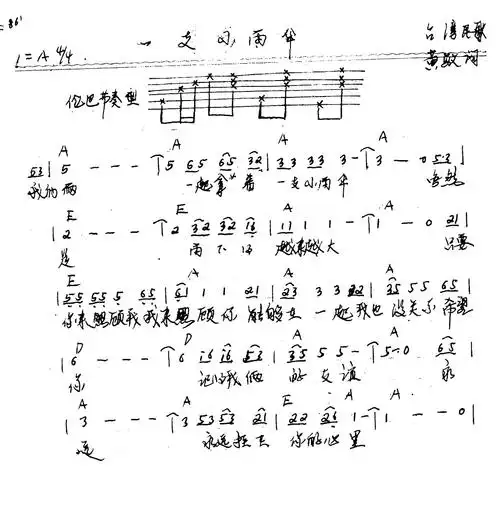 =86
一支小雨伞
1=A 4/4
台湾民歌
吉他节奏型
A A A
53 | 5 - - - ↑ 5 65 65 32 | 33 33 3 3 - ↑ 3 - 0 53 |
我们俩 一起拿着 一支小雨伞 虽然
E E A A
| 2 - - - ↑ 2 32 32 16 | 11 1 1 - ↑ 1 - 0 21 |
是 雨下得 越来越大 只要
E A A A
| 55 55 5 65 | 61 1 1 21 | 23 3 3 22 | 35 55 65 |
你来照顾我我来照顾你 能够 一起 我也没关系 希望
D D A A
| 6 - - - ↑ 6 16 16 53 | 35 5 5 - ↑ 5 - 0 65 |
你 记得我俩 的友谊 永
A A E A A
| 3 - - - ↑ 3 53 53 21 | 22 26 1 - ↑ 1 - - 0 |
远 永远 你的心里